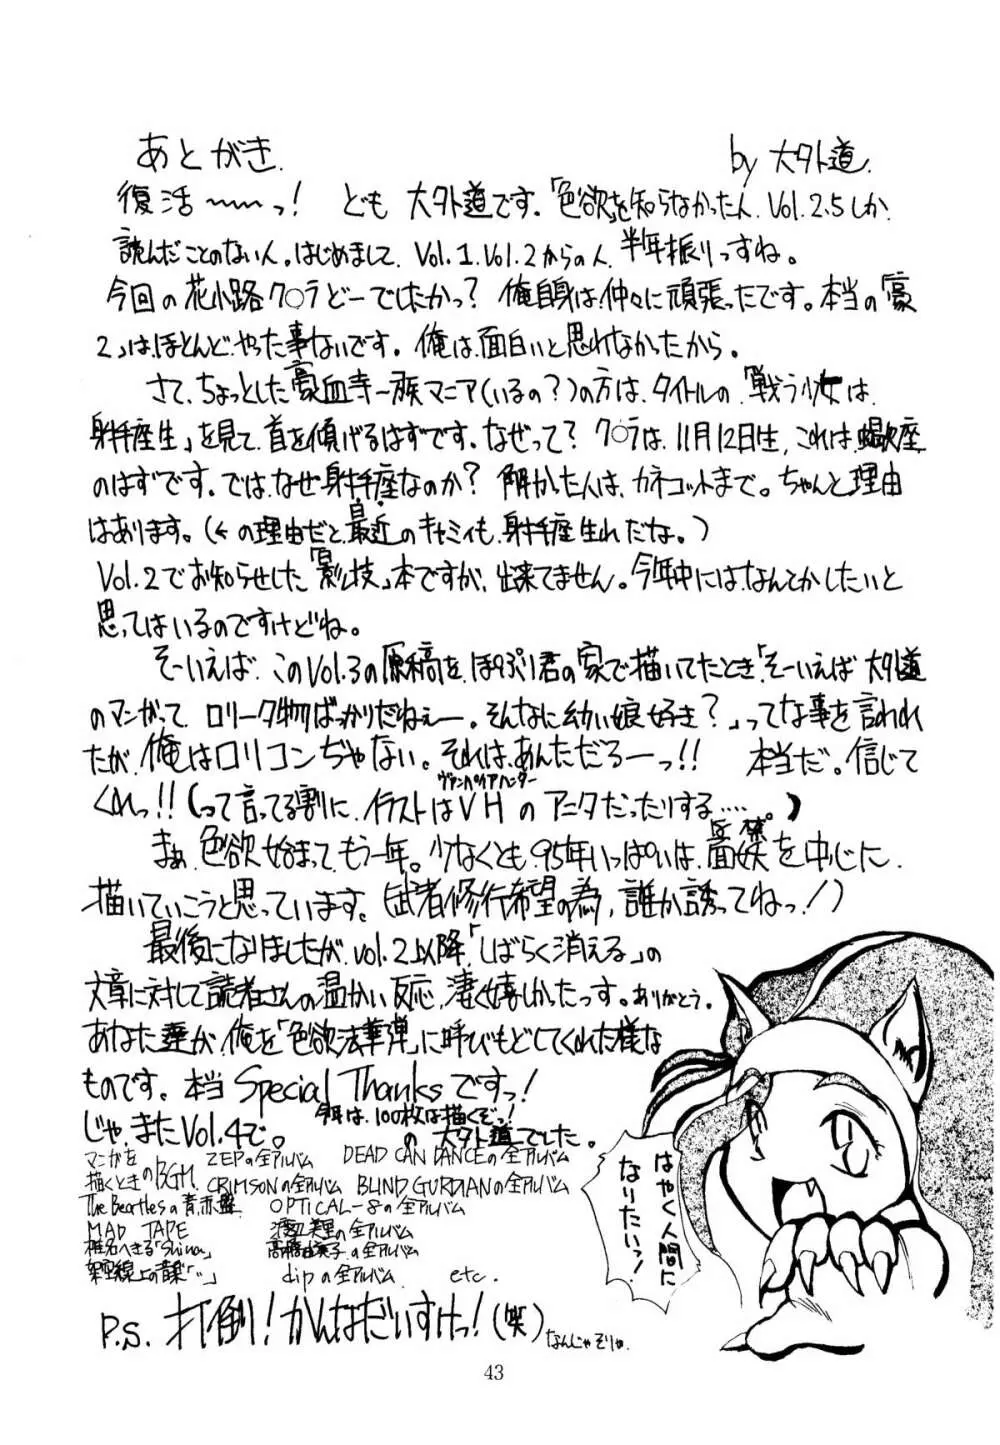 あとがき.
by 大外道.
復活〜〜〜っ! ども 大外道です。「色欲」を知らなかった人、Vol.2.5しか
読んだことのない人。はじめまして、Vol.1、Vol.2からの人、半年振りっすね。
今回の花小路ク○ラどーでしたかっ? 俺自身は、仲々に頑張ったです。本当の「豪
2」は、ほとんど、やった事ないです。俺は、面白いと思れなかったから。
さて、ちょっとした豪血寺一族マニア(いるの?)の方は、タイトルの「戦う少女は、
射手座生」を見て、首を傾げるはずです。なぜって? ク○ラは、11月12日生、これは、蠍座
のはずです。では、なぜ、射手座なのか? 解かった人は、カネコットまで。ちゃんと理由
はあります。(← の理由だと、最近のキャミィも、射手座生れだな。)
Vol.2でお知らせした「影技」本ですが、出来てません。今年中には、なんとかしたいと
思ってはいるのですけどね。
そーいえば、このVol.3の原稿を、ほぷり君の家で描いてたとき、「そーいえば 大外道
のマンガって、ロリータ物ばっかりだねぇー。そんなに幼い娘好き?」ってな事を言われ
たが、俺はロリコンぢゃない。それは、あんただろーっ!! 本当だ。信じて
ヴァンパイアハンター
くれっ!!(って言ってる割に、イラストはVHのアニタだったりする‥‥。)
まぁ、色欲始まってもう一年。少なくとも、95年いっぱいは、面妖を中心に、
描いていこうと思っています。(武者修行希望の為、誰か誘ってねっ!)
最後になりましたが、vol.2以降、「しばらく消える」の
文章に対して読者さんの温かい反応、凄く嬉しかったっす。ありがとう。
あなた達が、俺を「色欲法華弾」に呼びもどしてくれた様な
ものです。本当 Special Thanksですっ!
今年は、100枚は描くぞっ!
じゃ、またVol.4で。 の 大外道でした。
マンガを ZEPの全アルバム DEAD CAN DANCEの全アルバム
描くときのBGM. CRIMSONの全アルバム BLIND GURDIANの全アルバム
The Beartlesの青,赤盤 OPTICAL-8の全アルバム
MAD TAPE 渡辺美里の全アルバム
椎名へきる「Shiena」 高橋由美子の全アルバム
架空線上の音楽「‥」 dipの全アルバム. etc.
P.S. 打倒!かんなだいすけっ!(笑) なんじゃそりゃ.
はやく人間に
なりたいっ!
43